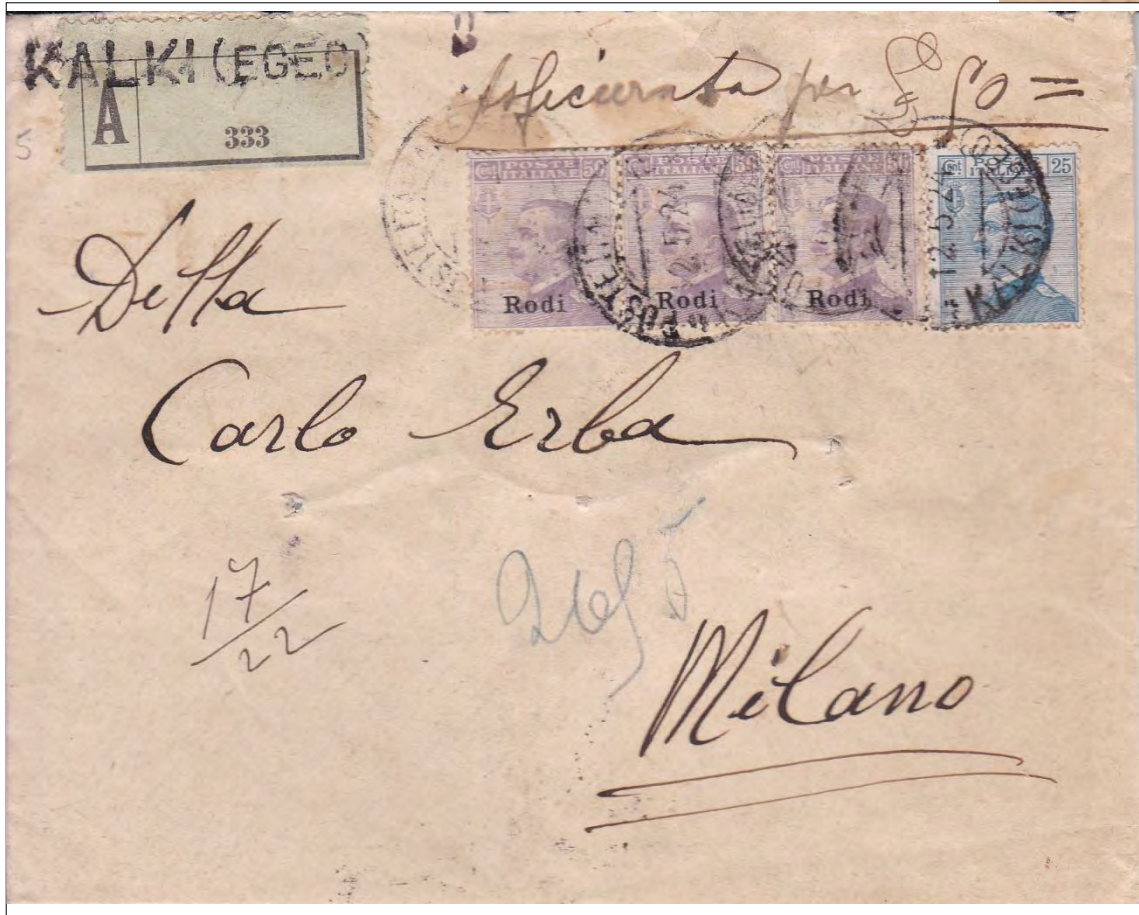 KALKI (EGEO)
A
333
5
Assicurata per 50 =
POSTE ITALIANE 50
POSTE ITALIANE 50
POSTE ITALIANE 50
25
Rodi
Rodi
Rodi
Ditta
Carlo Erba
17/22
Milano